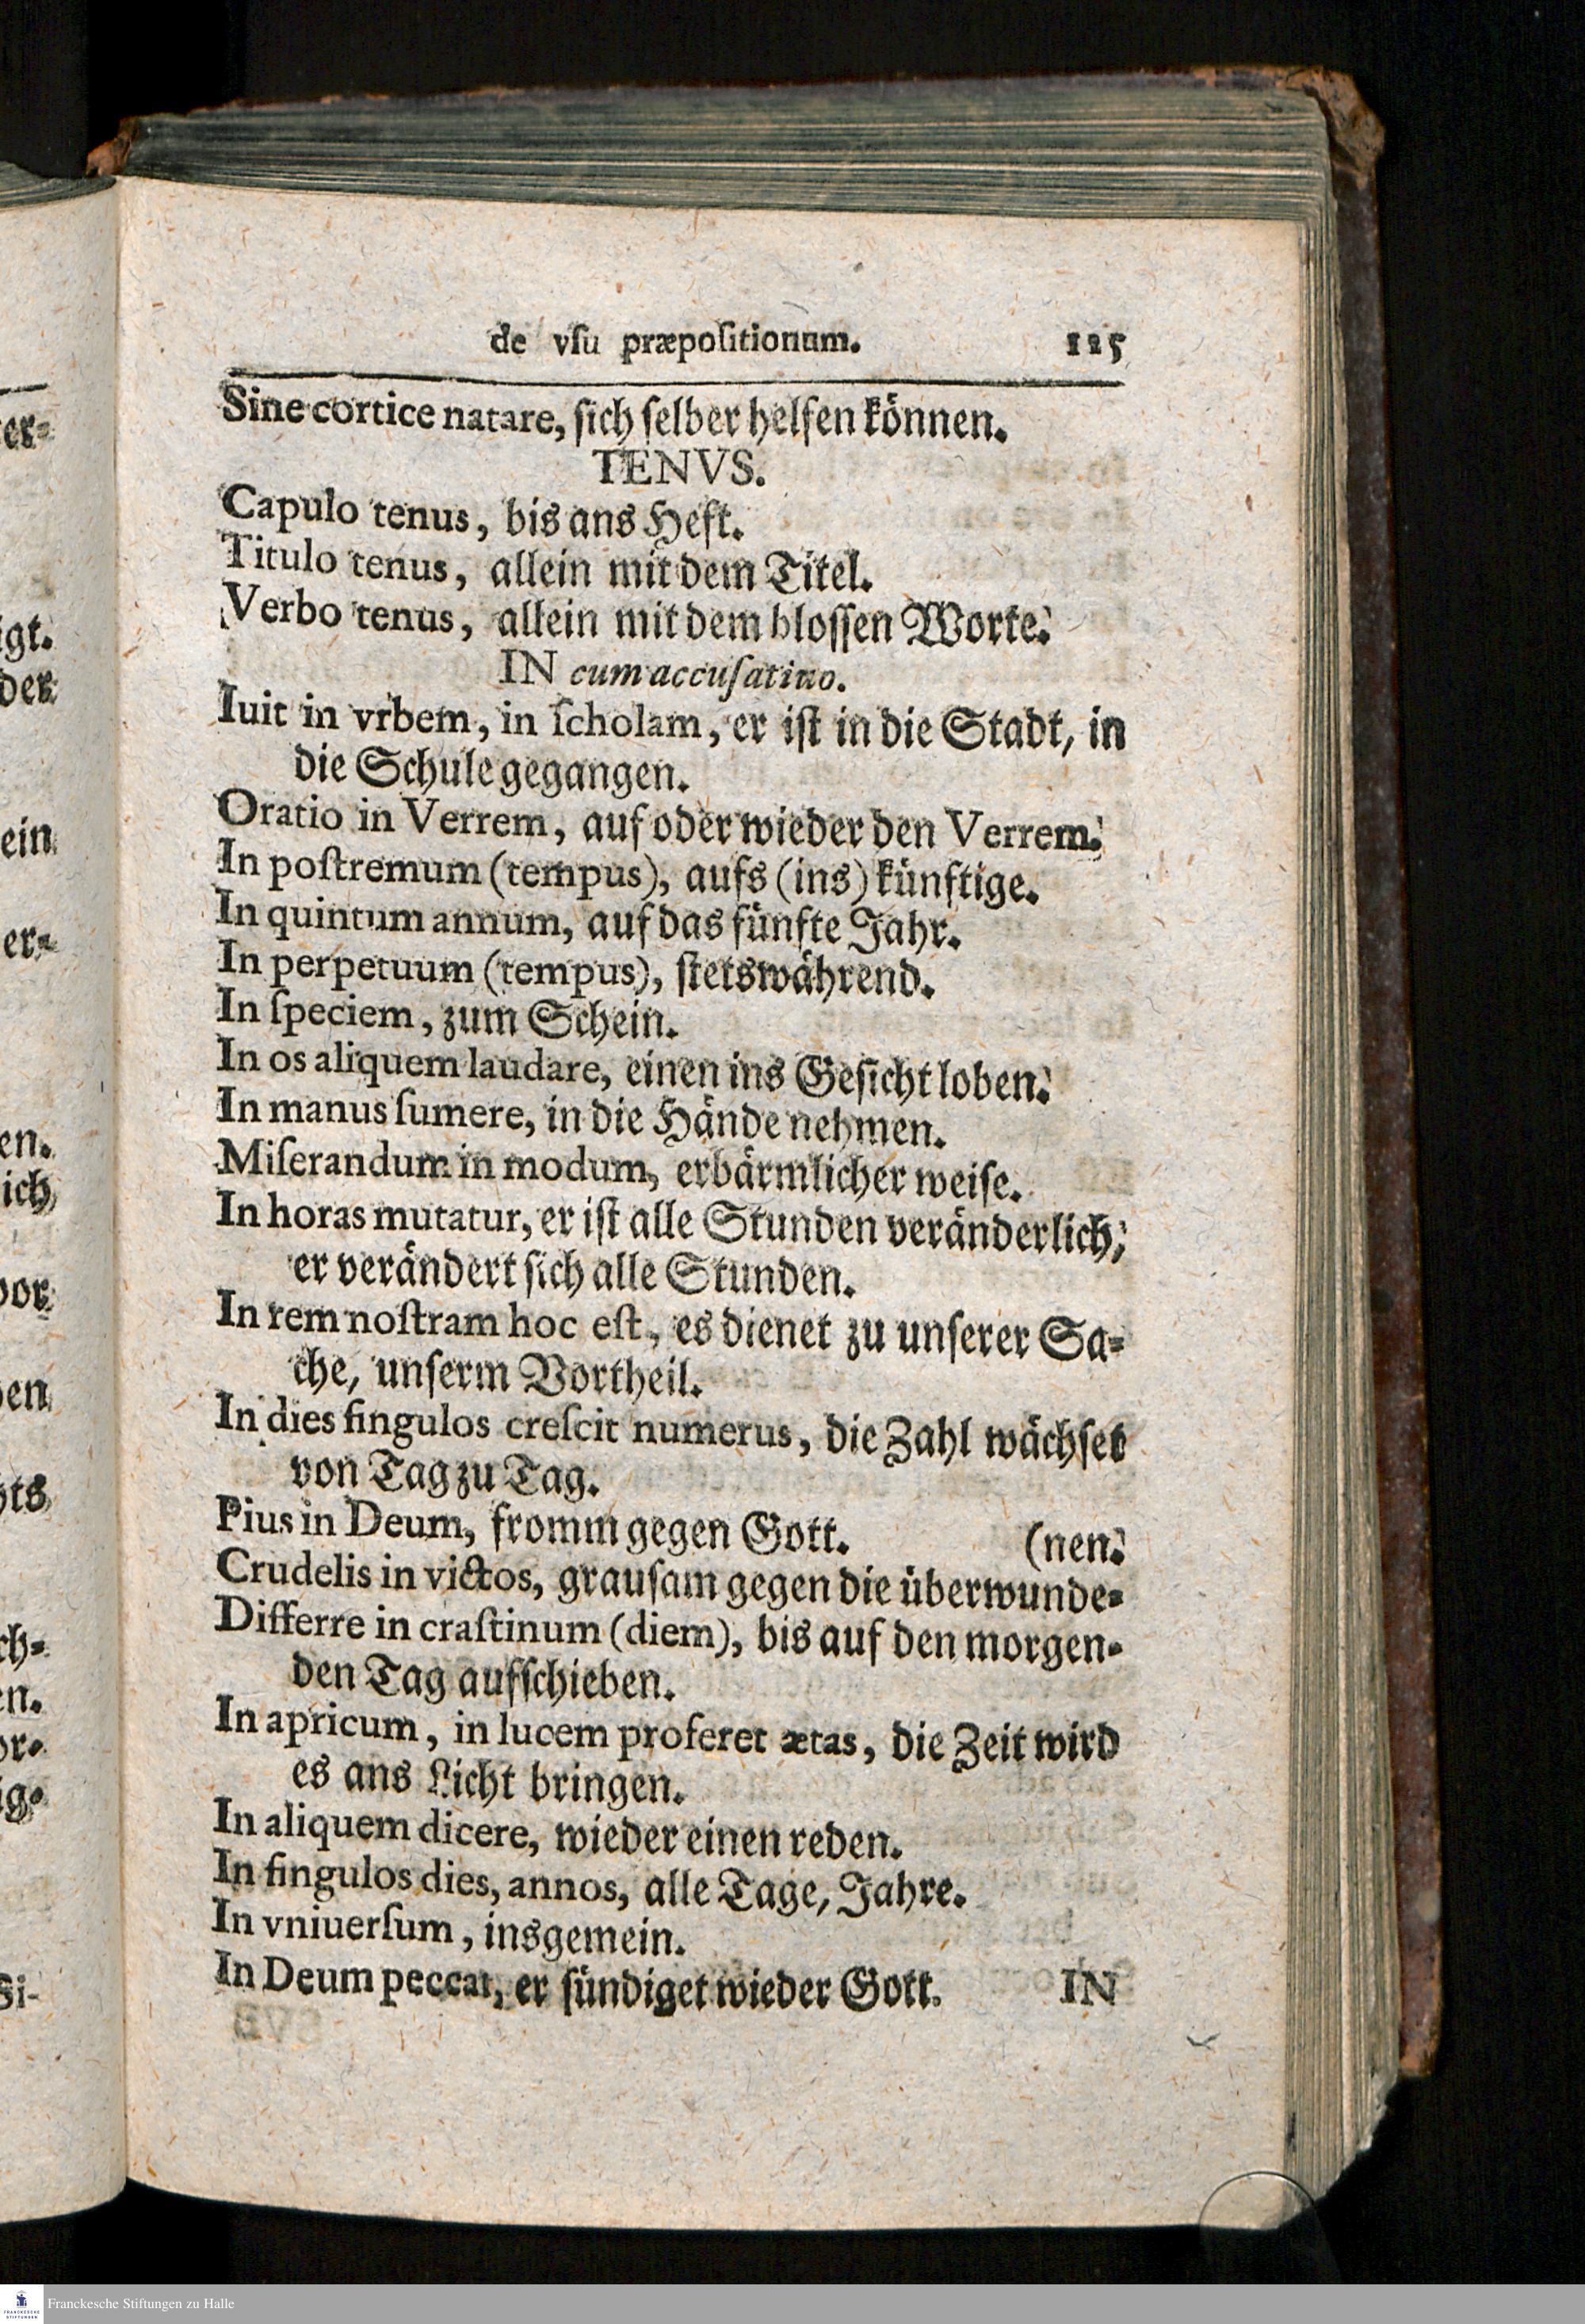 de vſu præpoſitionum. 125
Sine cortice natare, ſich ſelber helfen können.
TENVS.
Capulo tenus, bis ans Heft.
Titulo tenus, allein mit dem Titel.
Verbo tenus, allein mit dem bloſſen Worte.
IN cum accuſatiuo.
Iuit in vrbem, in ſcholam, er iſt in die Stadt, in
die Schule gegangen.
Oratio in Verrem, auf oder wieder den Verrem.
In poſtremum (tempus), aufs (ins) künftige.
In quintum annum, auf das fünfte Jahr.
In perpetuum (tempus), ſtetswährend.
In ſpeciem, zum Schein.
In os aliquem laudare, einen ins Geſicht loben.
In manus ſumere, in die Hände nehmen.
Miſerandum in modum, erbärmlicher weiſe.
In horas mutatur, er iſt alle Stunden veränderlich,
er verändert ſich alle Stunden.
In rem noſtram hoc eſt, es dienet zu unſerer Sa-
che, unſerm Vortheil.
In dies ſingulos creſcit numerus, die Zahl wächſet
von Tag zu Tag.
Pius in Deum, fromm gegen Gott. (nen.
Crudelis in victos, grauſam gegen die überwunde-
Differre in craſtinum (diem), bis auf den morgen-
den Tag aufſchieben.
In apricum, in lucem proferet ætas, die Zeit wird
es ans Licht bringen.
In aliquem dicere, wieder einen reden.
In ſingulos dies, annos, alle Tage, Jahre.
In vniuerſum, insgemein.
In Deum peccat, er ſündiget wieder Gott. IN
Franckesche Stiftungen zu Halle